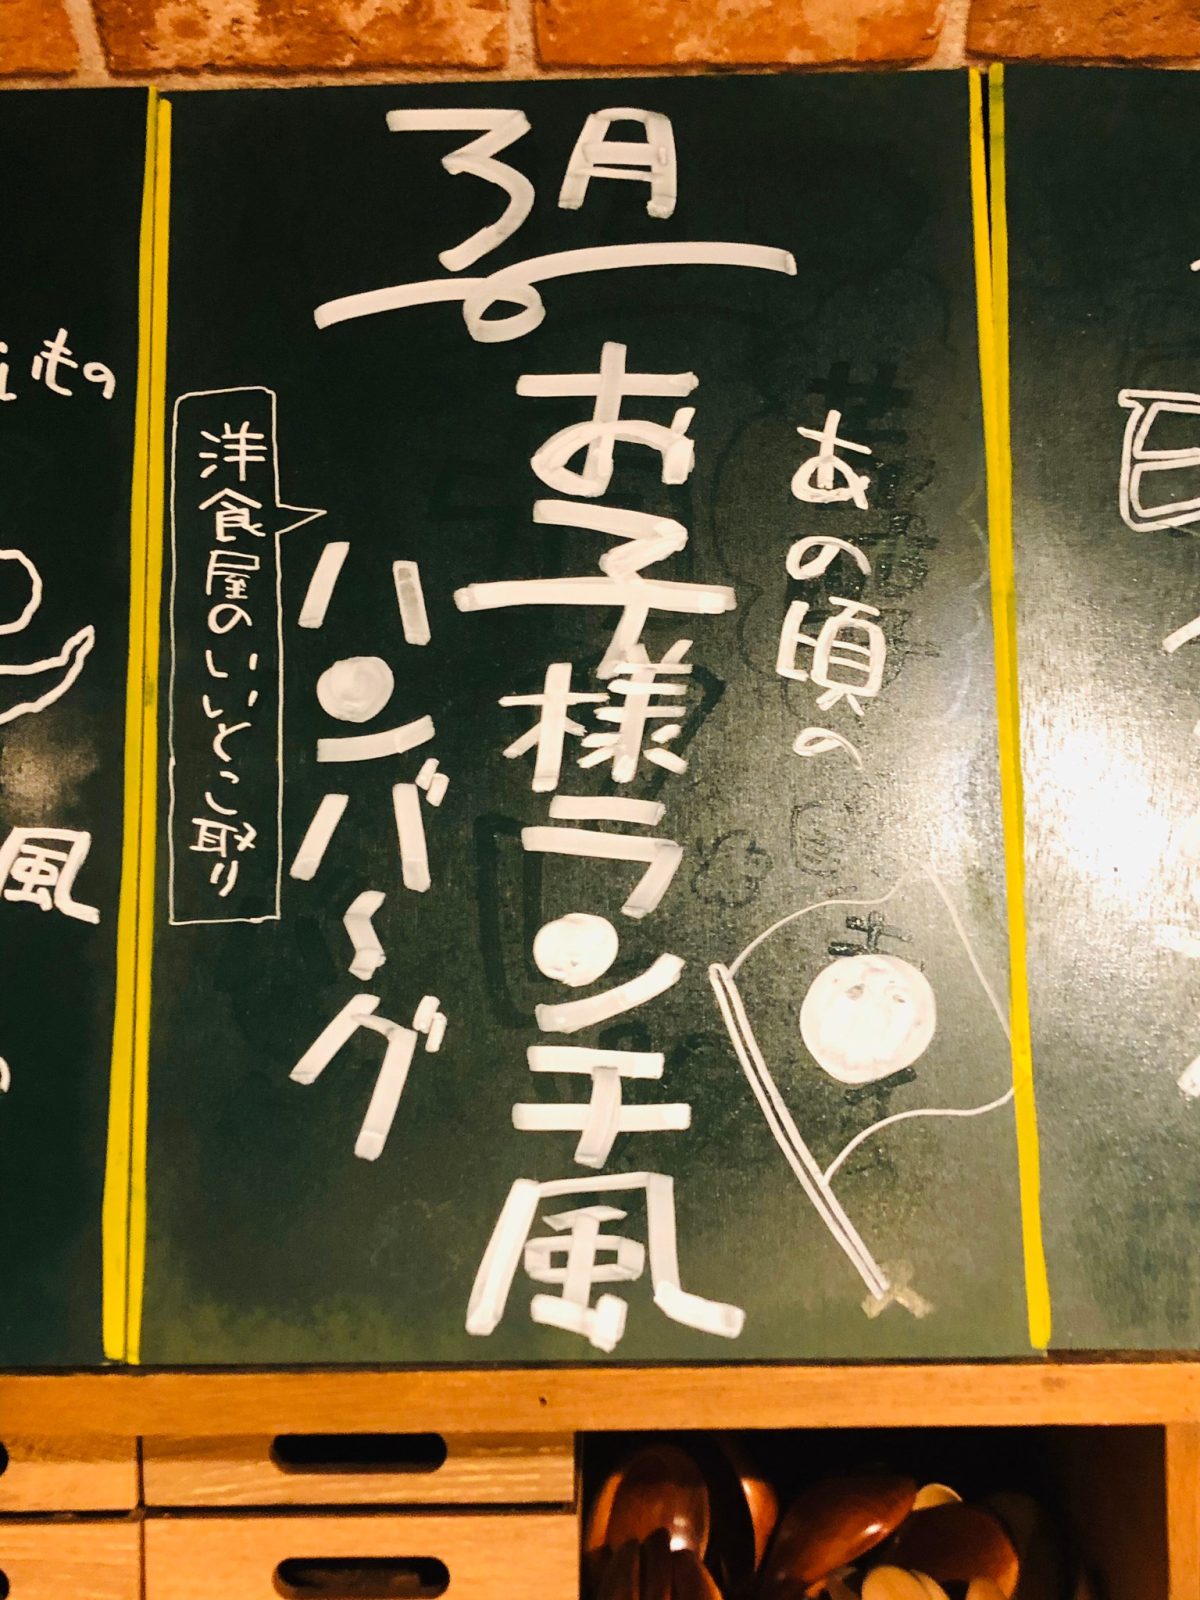 3月
あの頃の
お子様ランチ風
ハンバーグ
洋食屋のいいとこ取り
いもの
風